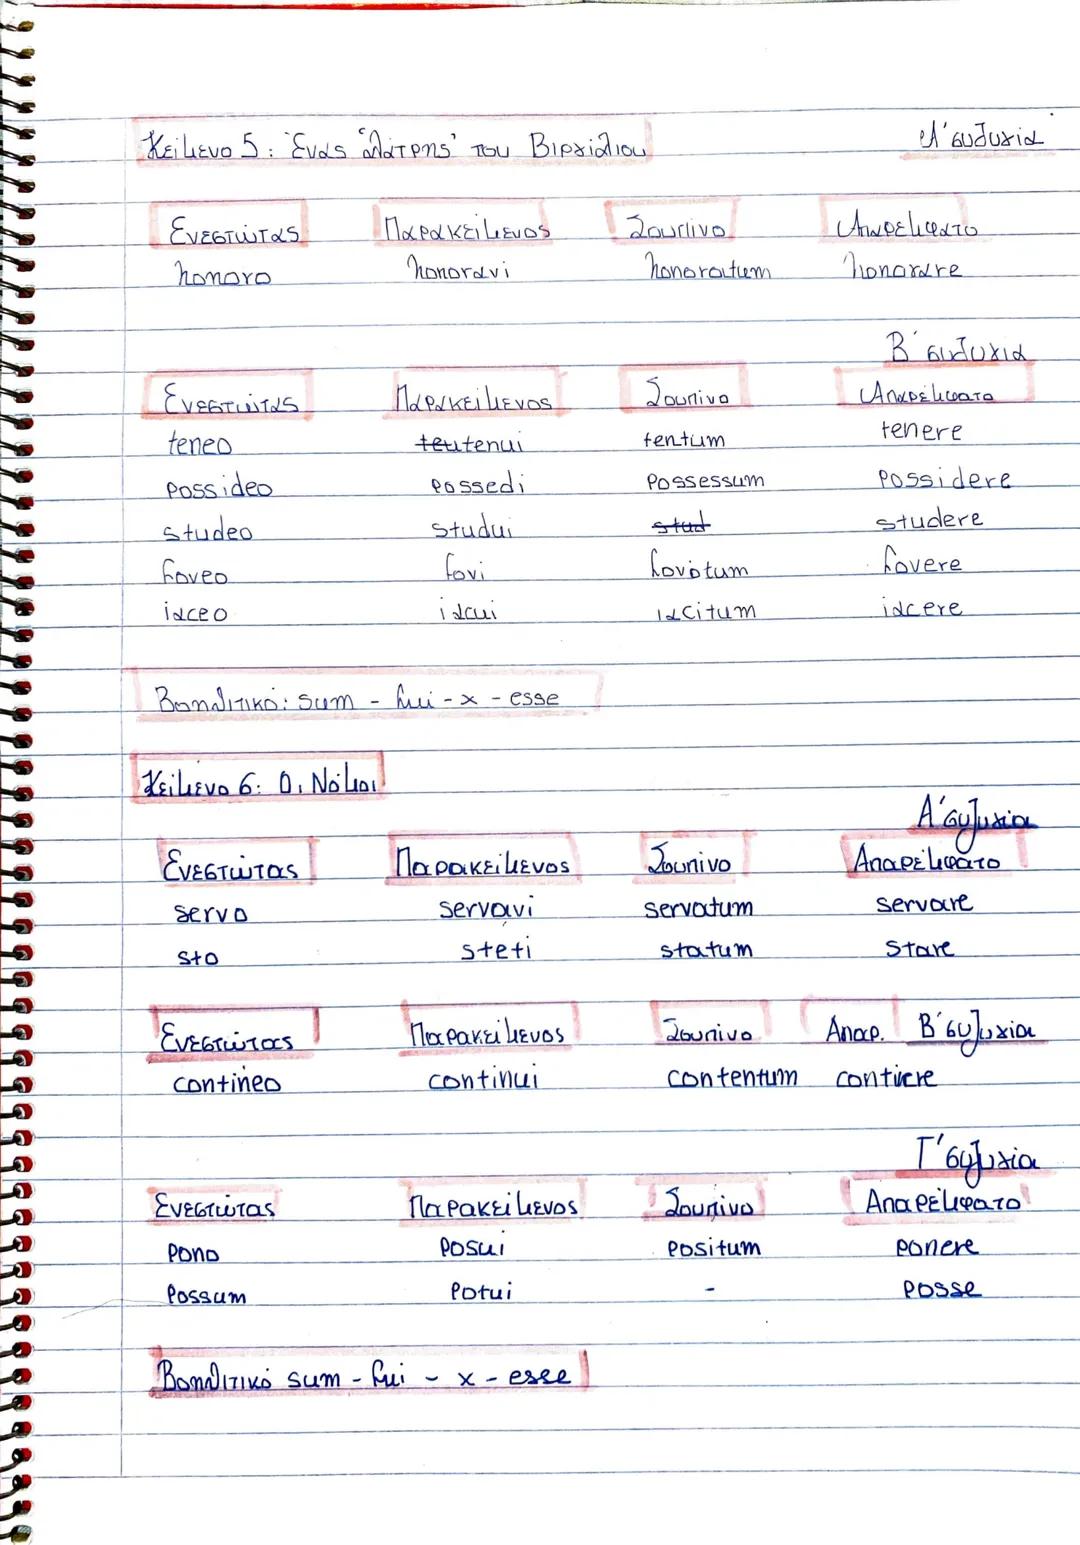 Κείμενο 5: Ένας 'λάτρης' του Βιργιλίου
Α' συζυγία
Ενεστώτας Παρακείμενος Σουπίνο Απαρέμφατο
honoro honoravi honoratum honorare
Β' συζυγία
Ενεστώτας Παρακείμενος Σουπίνο Απαρέμφατο
teneo tenui tentum tenere
possideo possedi possessum possidere
studeo studui stud studere
foveo fovi fovotum fovere
iaceo iacui iacitum iacere
Βοηθητικό: sum - fui - x - esse
Κείμενο 6: Οι Νόμοι
Α' συζυγία
Ενεστώτας Παρακείμενος Σουπίνο Απαρέμφατο
servo servavi servatum servare
sto steti statum stare
Ενεστώτας Παρακείμενος Σουπίνο Απαρ. Β' συζυγία
contineo continui contentum
Γ' συζυγία
Ενεστώτας Παρακείμενος Σουπίνο Απαρέμφατο
pono posui positum ponere
possum potui - posse
Βοηθητικό sum - fui - x - esse